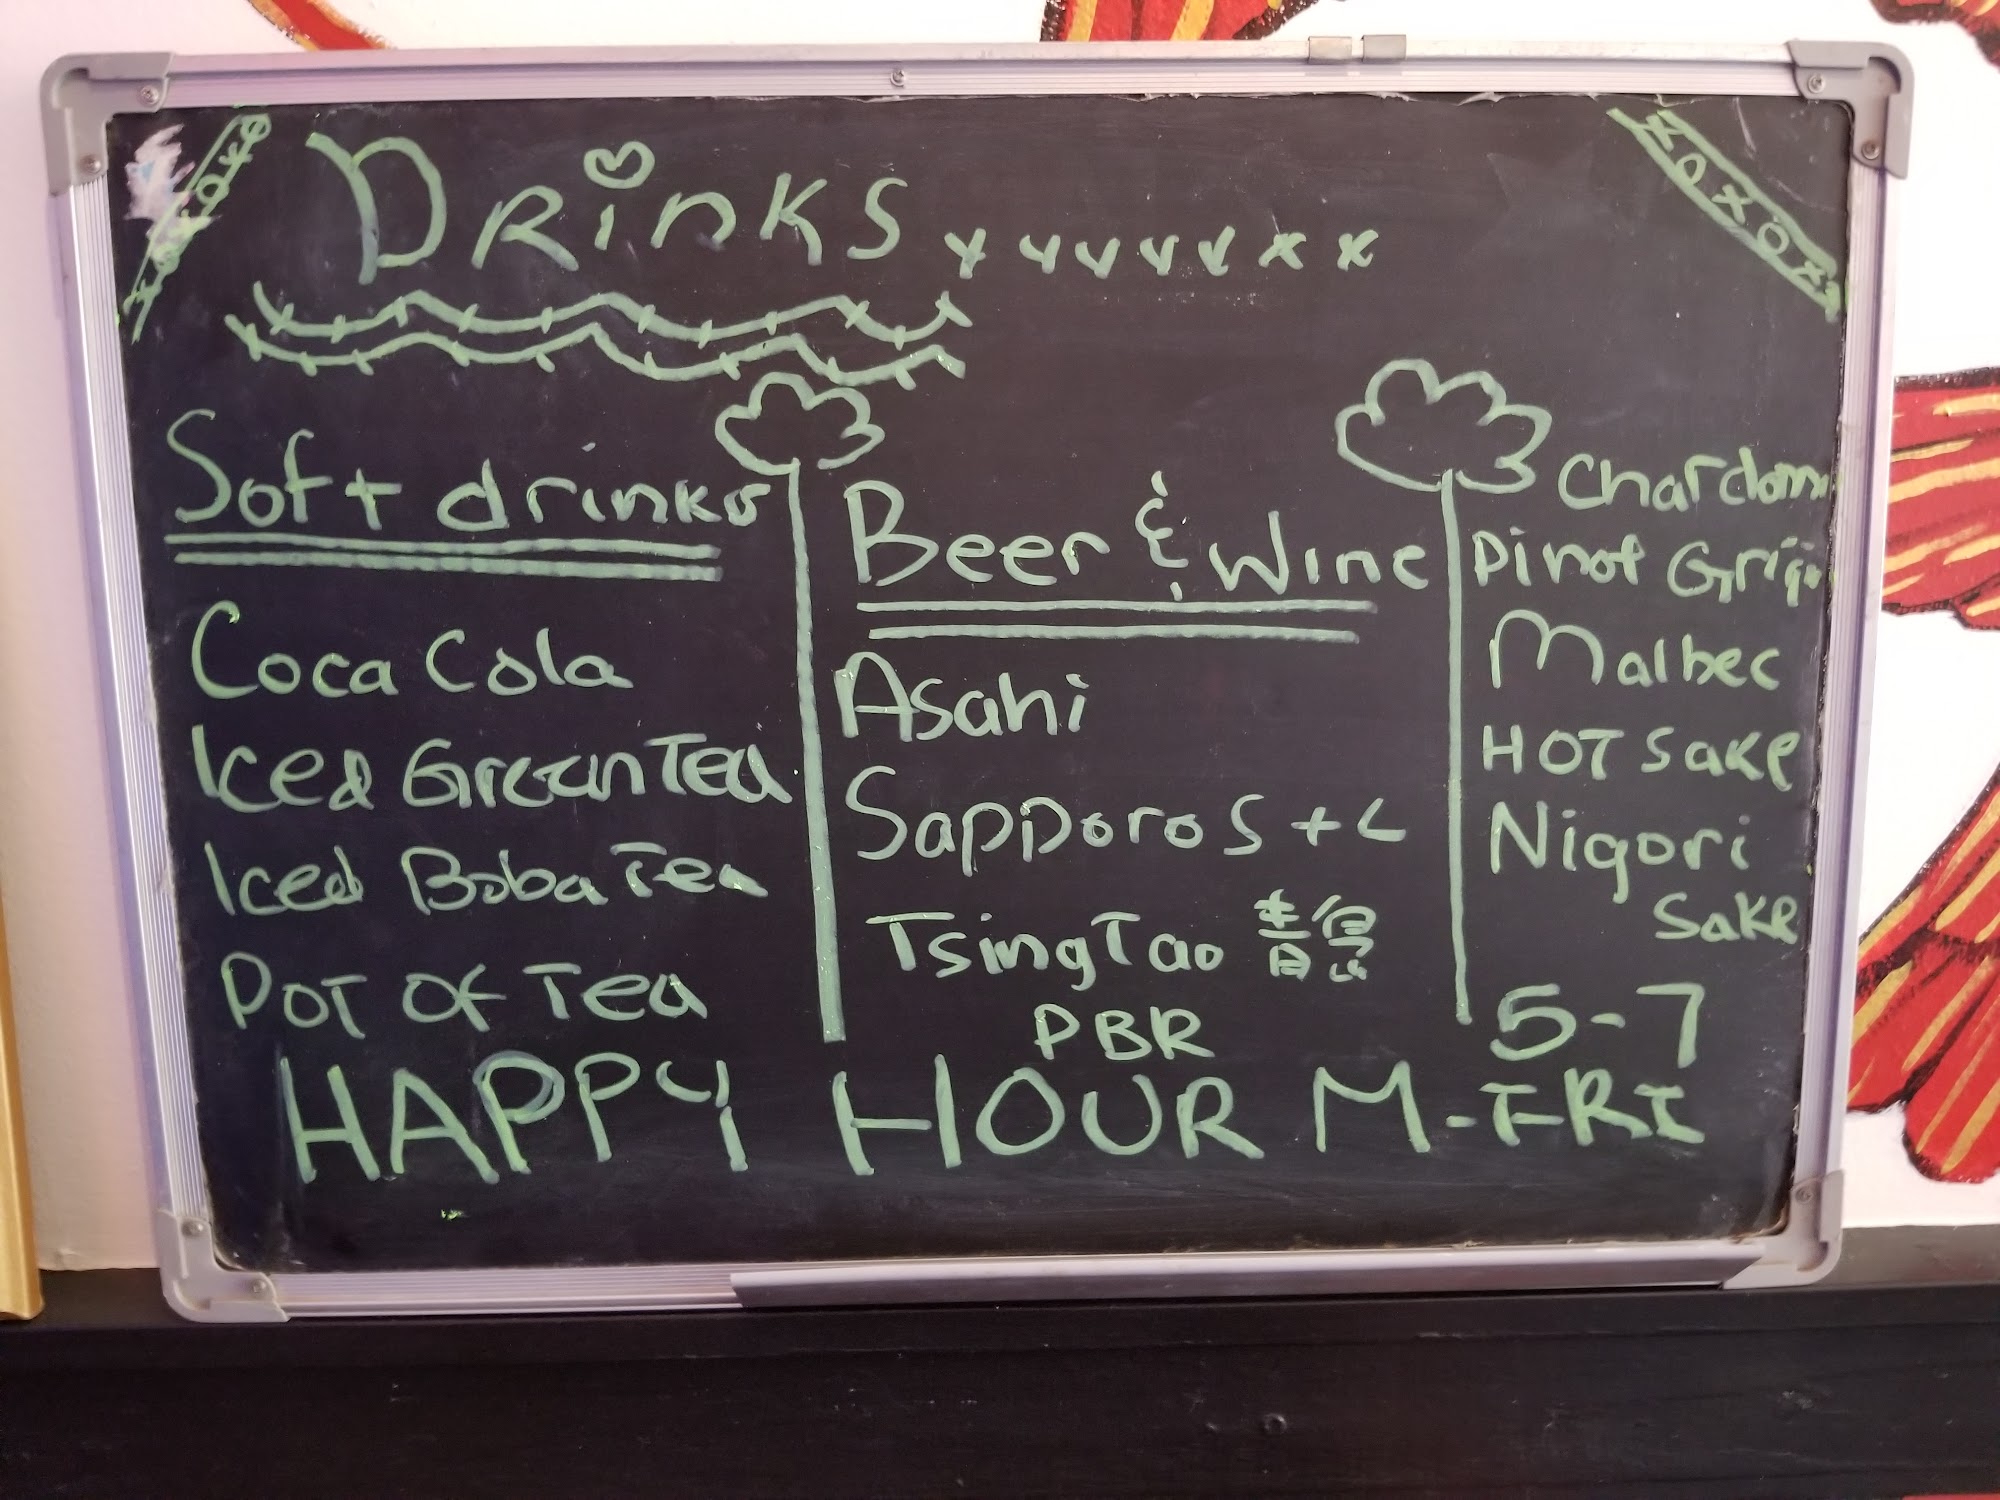 XOXOXO
DRiNKS
XOXOX
Soft drinks
Coca Cola
Iced Green Tea
Iced Boba Tea
POT OF Tea
Beer & Wine
Asahi
Sapporo S + L
TsingTao
PBR
Chardonn
Pinot Grigio
Malbec
HOT Sake
Nigori
Sake
5-7
HAPPY HOUR M-FRI